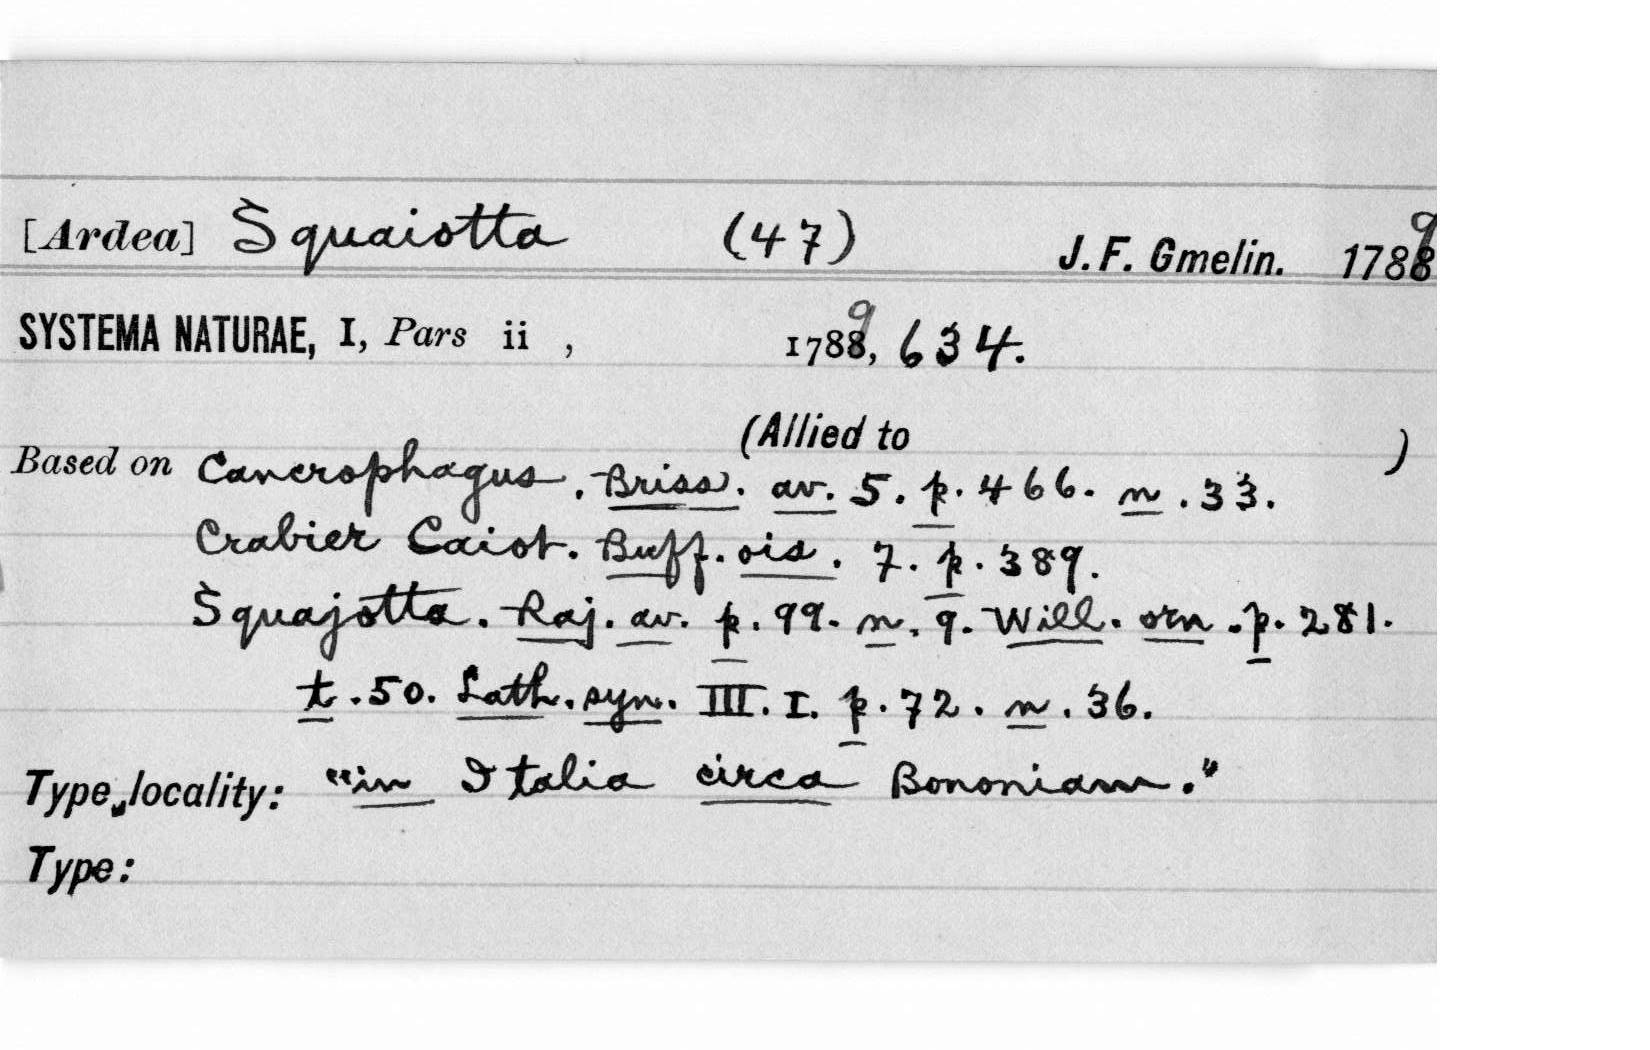 [Ardea] Squaiotta (47) J. F. Gmelin. 1789
SYSTEMA NATURAE, I, Pars ii , 1789, 634.
(Allied to )
Based on Cancrophagus. Briss. av. 5. p. 466. n. 33.
Crabier Caiot. Buff. ois. 7. p. 389.
Squajotta. Raj. av. p. 99. n. 9. Will. orn. p. 281.
t. 50. Lath. syn. III. I. p. 72. n. 36.
Type locality: "in Italia circa Bononiam."
Type: